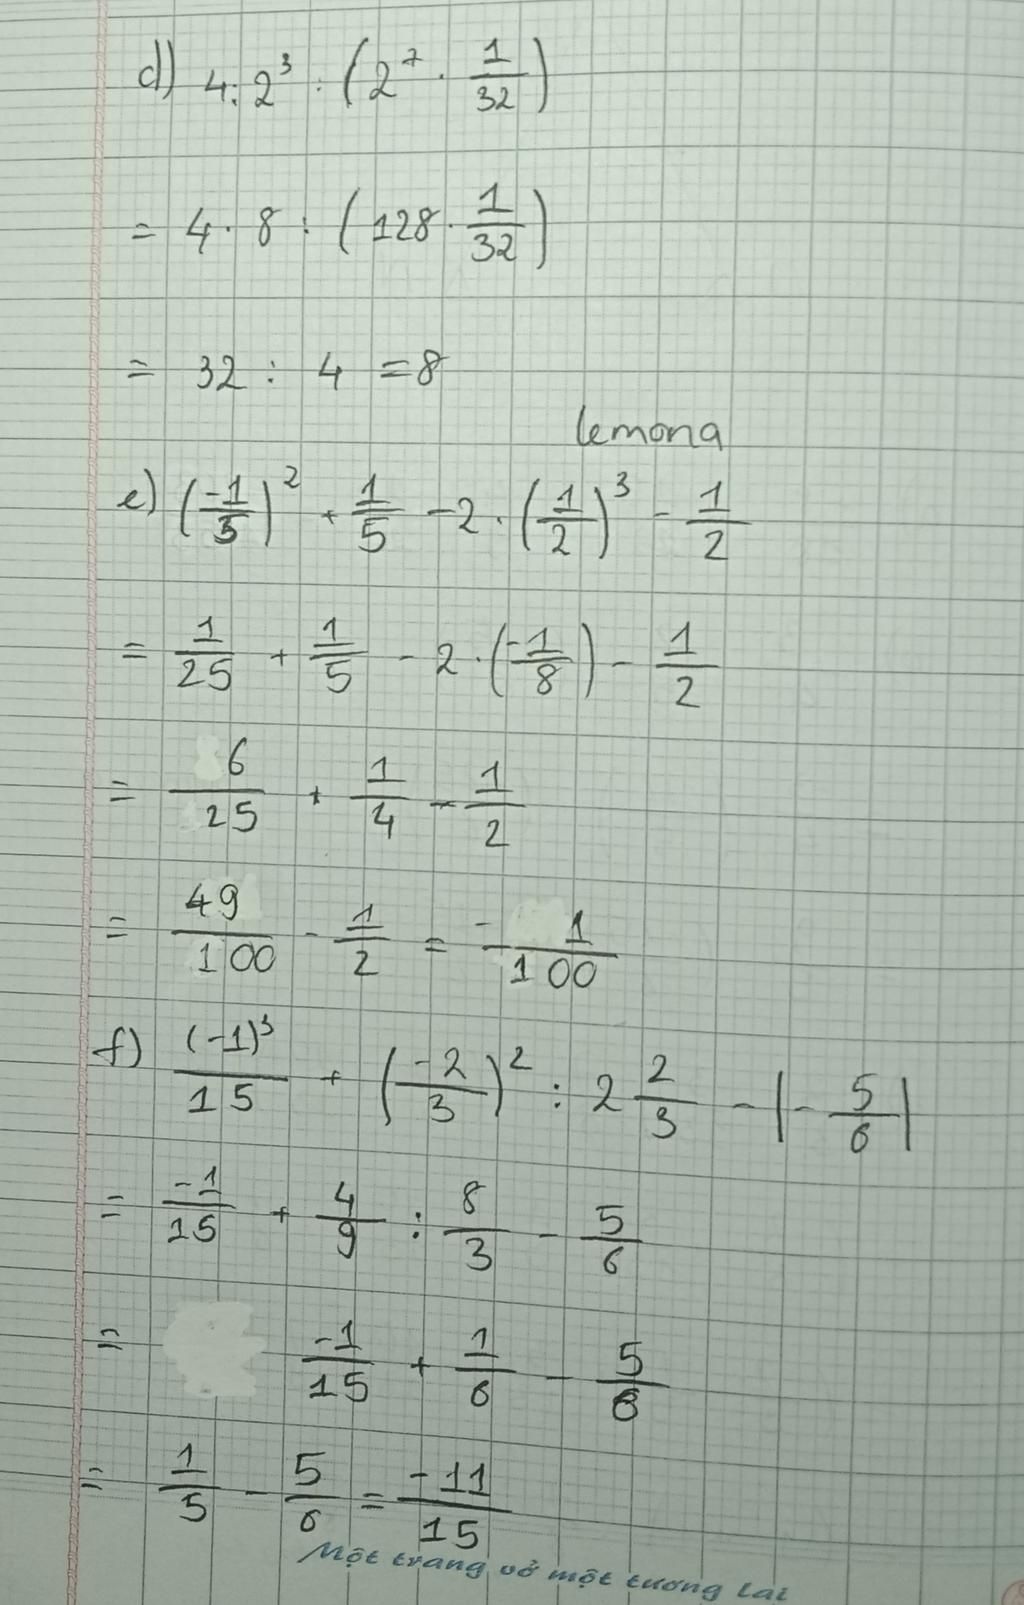 d) 4 : 2³ : (2⁷ · 1/32)
= 4 · 8 : (128 · 1/32)
= 32 : 4 = 8
lemona
e) (-1/5)² + 1/5 - 2 · (1/2)³ - 1/2
= 1/25 + 1/5 - 2 · (-1/8) - 1/2
= 6/25 + 1/4 - 1/2
= 49/100 - 1/2 = -1/100
f) (-1)³/15 + (-2/3)² : 2 2/3 - |-5/6|
= -1/15 + 4/9 : 8/3 - 5/6
= -1/15 + 1/6 - 5/6
= 1/5 - 5/6 = -11/15
Một trang vở một tương lai